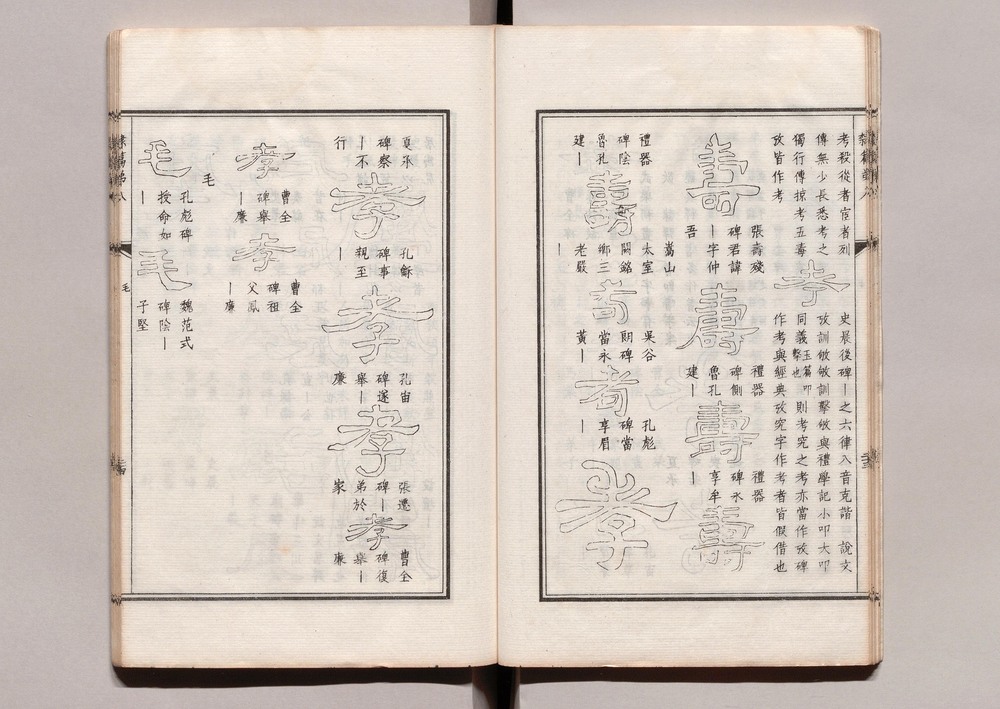 考殺從者宦者列
傳無少長悉考之
獨行傳掠考五毒
攷皆作考
考
史晨後碑｜之六律八音克諧
說文
攷訓敂敂訓擊敂與禮學記小叩大叩
同義
玉篇叩
擊也
則考究之考亦當作攷碑
作考與經典攷究字作考者皆假借也
壽
張壽殘
碑君諱
｜字仲
吾
壽
禮器
碑側
魯孔
建｜
壽
禮器
碑永
享牟
｜
壽
禮器
碑陰
魯孔
建｜
壽
嵩山
太室
闕銘
鄉三
老嚴
｜
壽
吳谷
朗碑
當永
黃｜
壽
孔彪
碑當
享眉
｜
孝
夏承
碑察
｜不
行
孝
孔龢
碑事
親至
｜
孝
孔宙
碑遂
舉｜
廉
孝
張遷
碑｜
弟於
家
孝
曹全
碑復
舉｜
廉
孝
曹全
碑舉
｜廉
孝
曹全
碑祖
父鳳
｜廉
毛
毛
孔彪碑
授命如
｜
毛
魏范式
碑陰｜
子堅
隸篇弟八
毛